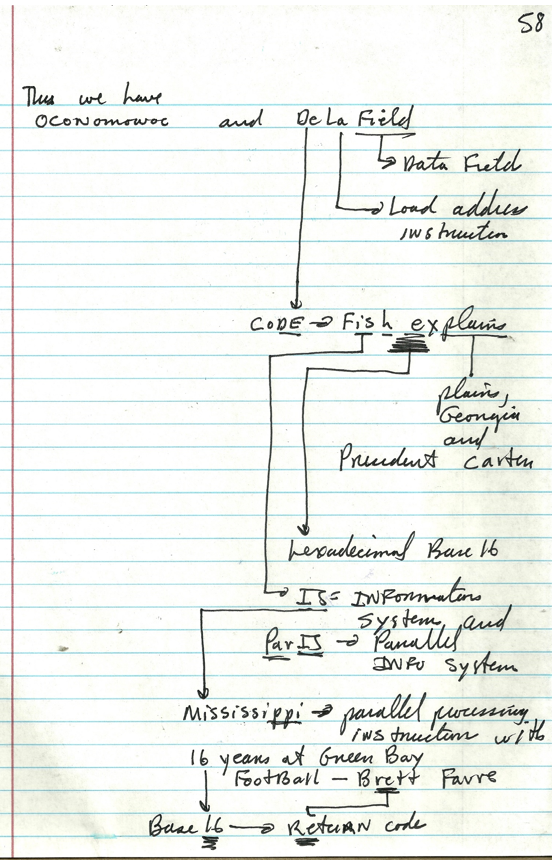 58
Thus we have
OCONOMOWOC and DeLa Field
Data Field
Load address
instruction
CODE → Fish explains
plains,
Georgia
and
President Carter
hexadecimal Base 16
IS = INFormation
System and
ParIS → Parallel
INFO System
Mississippi → parallel processing
instruction with
16 years at Green Bay
Football - Brett Favre
Base 16 → RETURN code